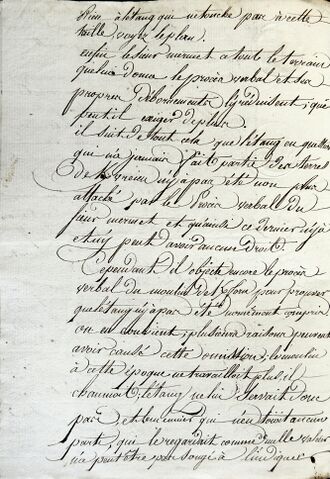 Rien à l'étang qui ne touche pas à cette
taille, voyez le plan.
enfin le sieur mermet a tout le terrain
que lui donne le procès verbal et ses
propres débornements l'y réduisent; que
peut il exiger de plus
il suit de tout cela que l'étang en question
qui n'a jamais fait partie des terres
de n'y a pas été non plus
attaché par le Procès verbal du
sieur mermet et qu'ainsi ce dernier n'y a
et n'y peut avoir aucun droit.
Cependant il objecte encore le procès
verbal du moulin de pour prouver
que l'étang n'y a pas été nommément compris
on en convient; plusieurs raisons peuvent
avoir causé cette omission, le moulin
à cette époque ne travailloit plus, il
chaumoit, l'étang ne lui servait donc
pas, et le meunier qui n'en tiroit aucun
parti, qui le regardait comme de nulle valeur
n'a peut être pas songé à l'indiquer